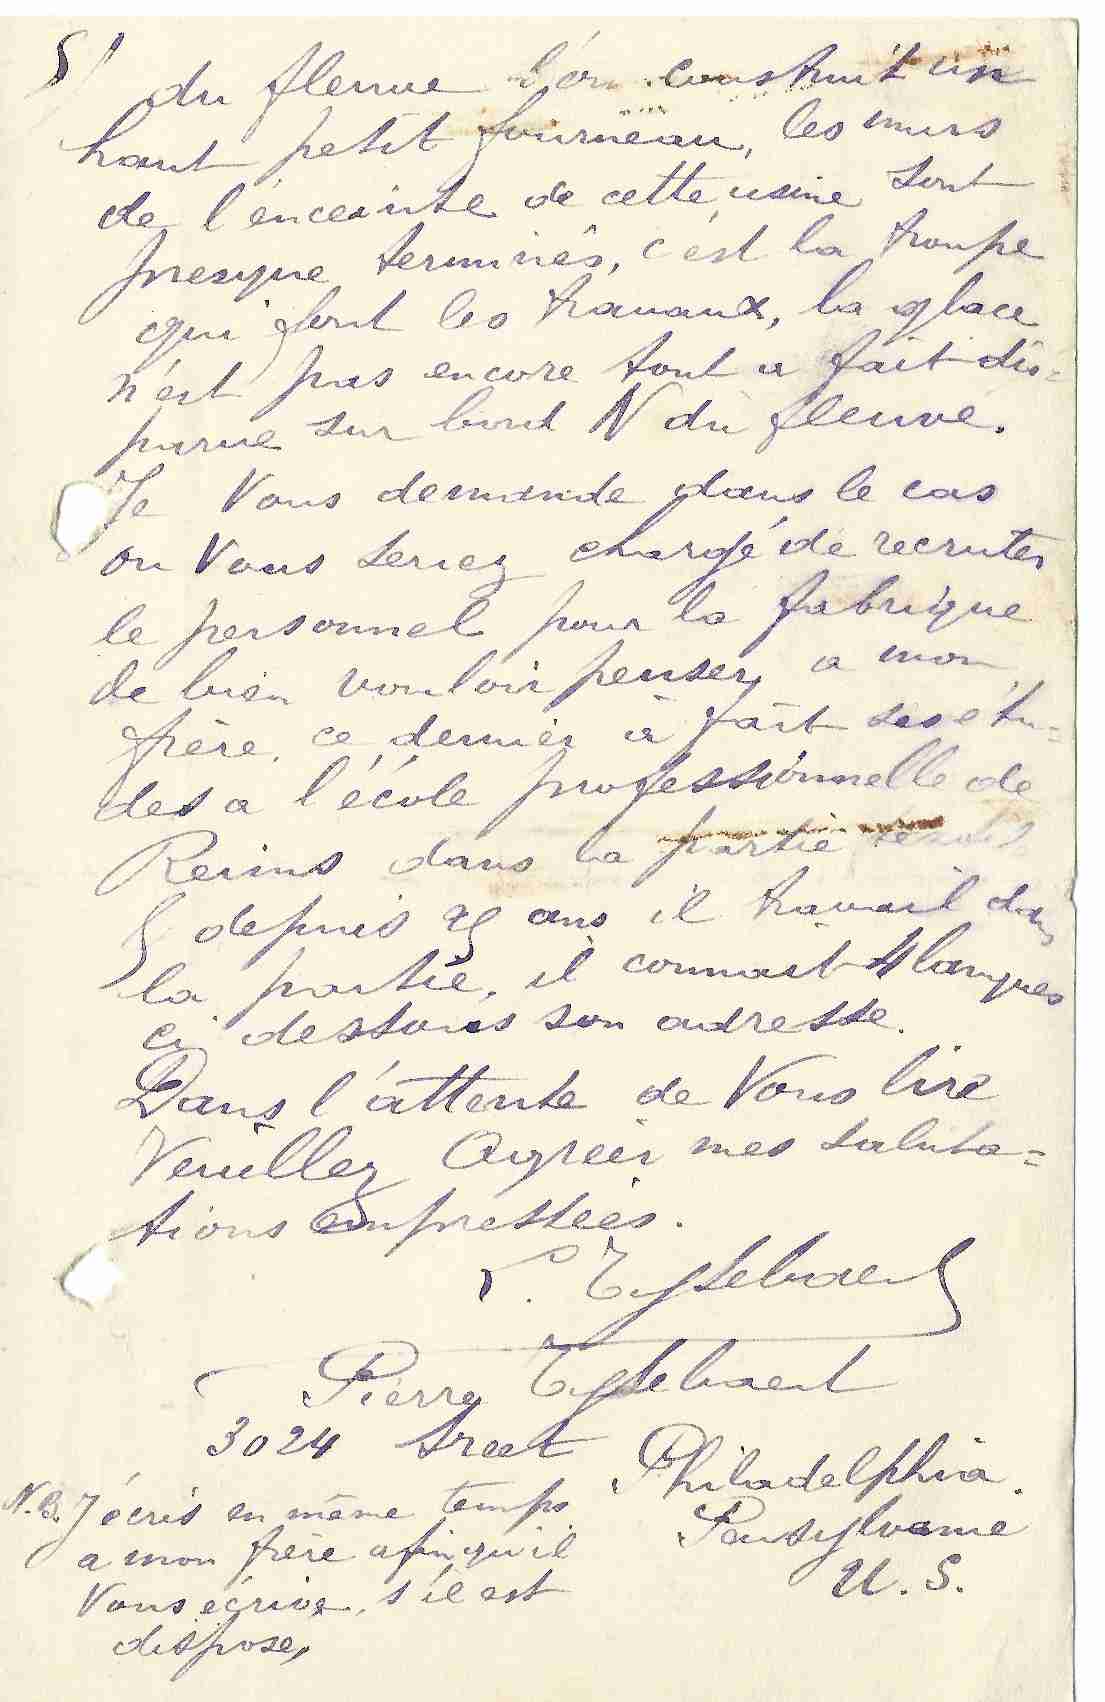 5/
du fleuve l'on construit un
haut petit fourneau, les murs
de l'enceinte de cette usine sont
presque terminés, c'est la troupe
qui font les travaux, la glace
n'est pas encore tout a fait dis=
parue sur bord N du fleuve.
Je Vous demande dans le cas
ou Vous seriez chargé de recruter
le personnel pour la fabrique
de bien vouloir penser a mon
frère, ce dernier à fait ses étu=
des a l'école professionnelle de
Reims dans la partie
depuis ans il travail dans
la partie, il connait 4 langues
ci dessous son adresse.
Dans l'attente de Vous lire
Veuillez Agréer mes saluta=
tions empressées.
Pierre
3024 Street Philadelphia.
Pensylvanie
U. S.
N.B. J'écris en même temps
a mon frère afin qu'il
Vous écrive, s'il est
dispose,